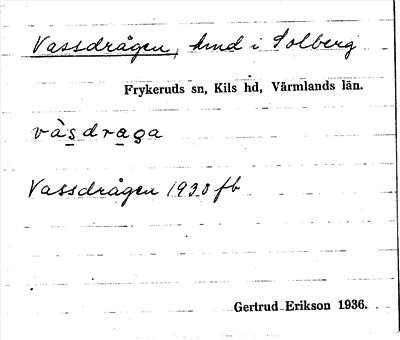 Vassdrågen, hmd i Solberg
Frykeruds sn, Kils hd, Värmlands län.
và̀s̲dra̲ga
Vassdrågen 1930 fb
Gertrud Erikson 1936.